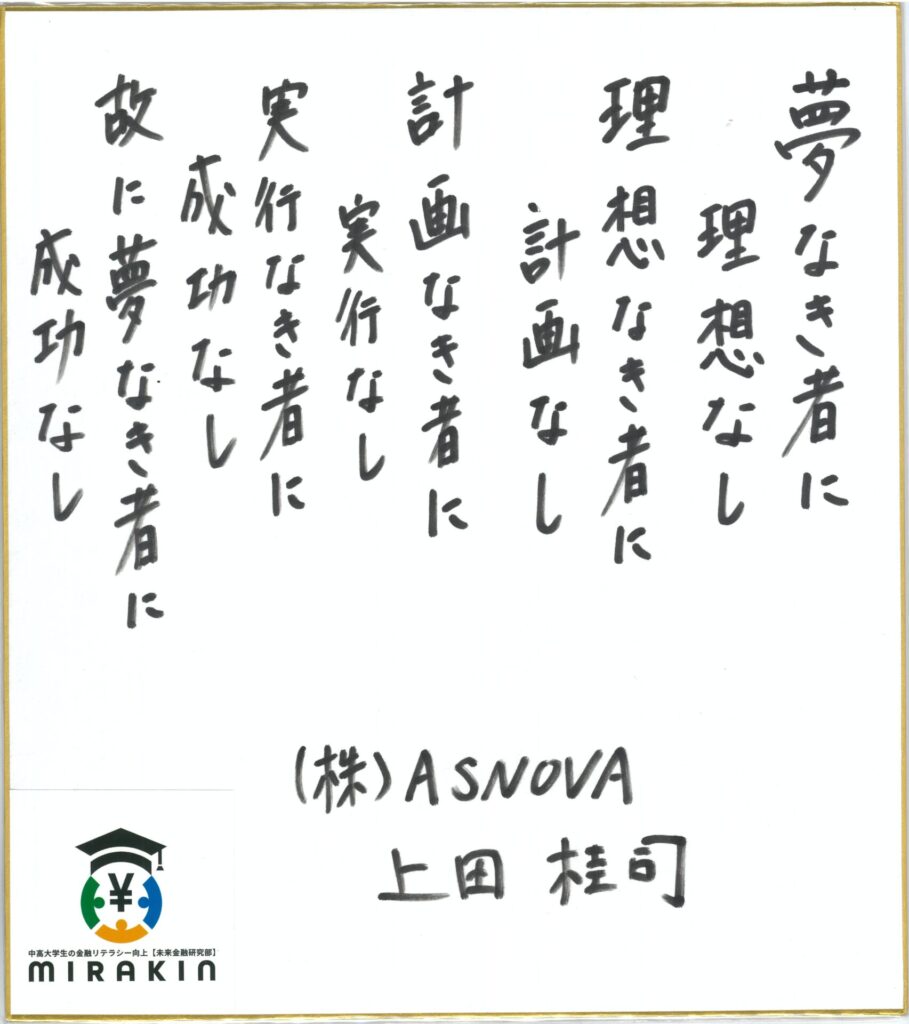 夢なき者に
理想なし
理想なき者に
計画なし
計画なき者に
実行なし
実行なき者に
成功なし
故に夢なき者に
成功なし
(株)ASNOVA
上田 桂司
¥
中高大学生の金融リテラシー向上【未来金融研究部】
MIRAKIN